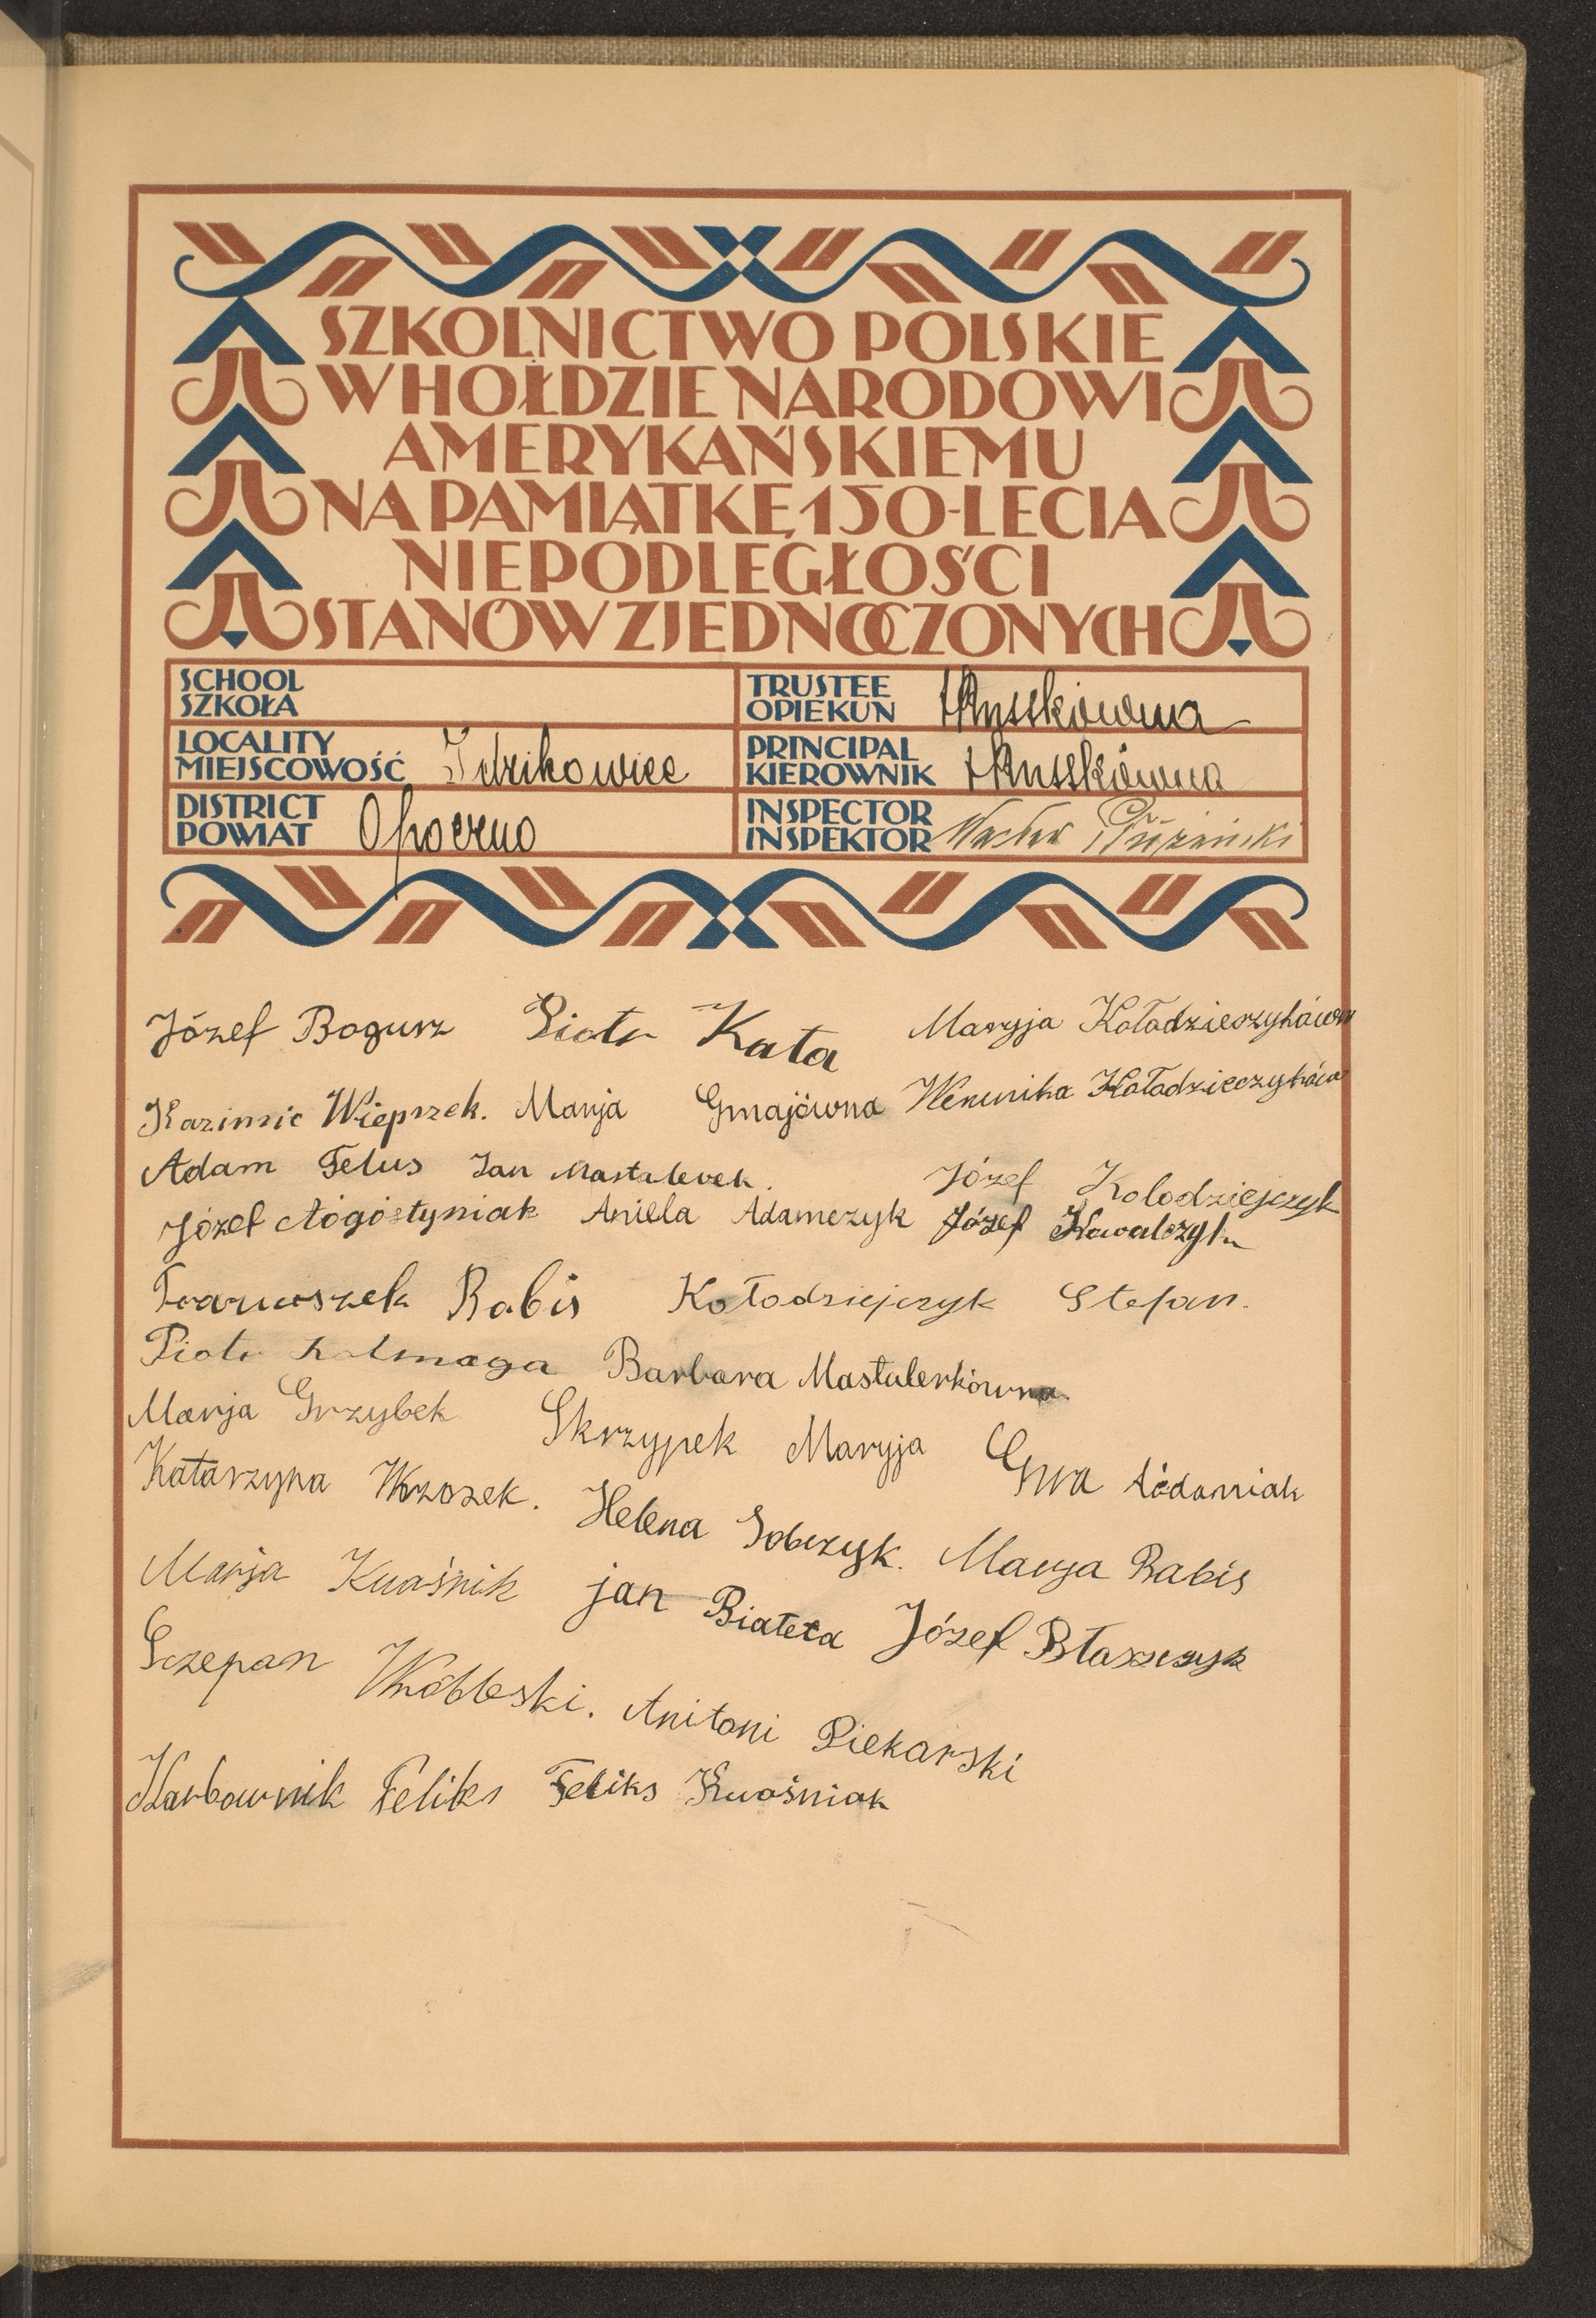 SZKOLNICTWO POLSKIE
W HOŁDZIE NARODOWI
AMERYKAŃSKIEMU
NA PAMIĄTKĘ 150-LECIA
NIEPODLEGŁOŚCI
STANÓW ZJEDNOCZONYCH
SCHOOL
SZKOŁA
LOCALITY
MIEJSCOWOŚĆ Idzikowice
DISTRICT
POWIAT Opoczno
TRUSTEE
OPIEKUN
PRINCIPAL
KIEROWNIK
INSPECTOR
INSPEKTOR Wacław
Józef Bogusz Piotr Kata Maryja Koładzieczykówn
Kazimic Wieprzek. Marja Gmajówna Wenunika Koładzieczyków
Adam Felus Jan Mastalerek. Józef Kolodziejczyk
Józef Aógóstyniak Aniela Adamczyk Józef Kowalczyk
Franciszek Babis Kołodziejczyk Stefan.
Piotr Barbara Mastalerkówna
Marja Grzybek Skrzypek Maryja Ewa Aódamiak
Katarzyna Wrzosek. Helena Sobczyk. Marya Babis
Marja Kwaśnik jan Białeta Józef Błaszczyk
Sczepan Wróbleski. Anitoni Piekarski
Karbownik Feliks Feliks Kwaśniak